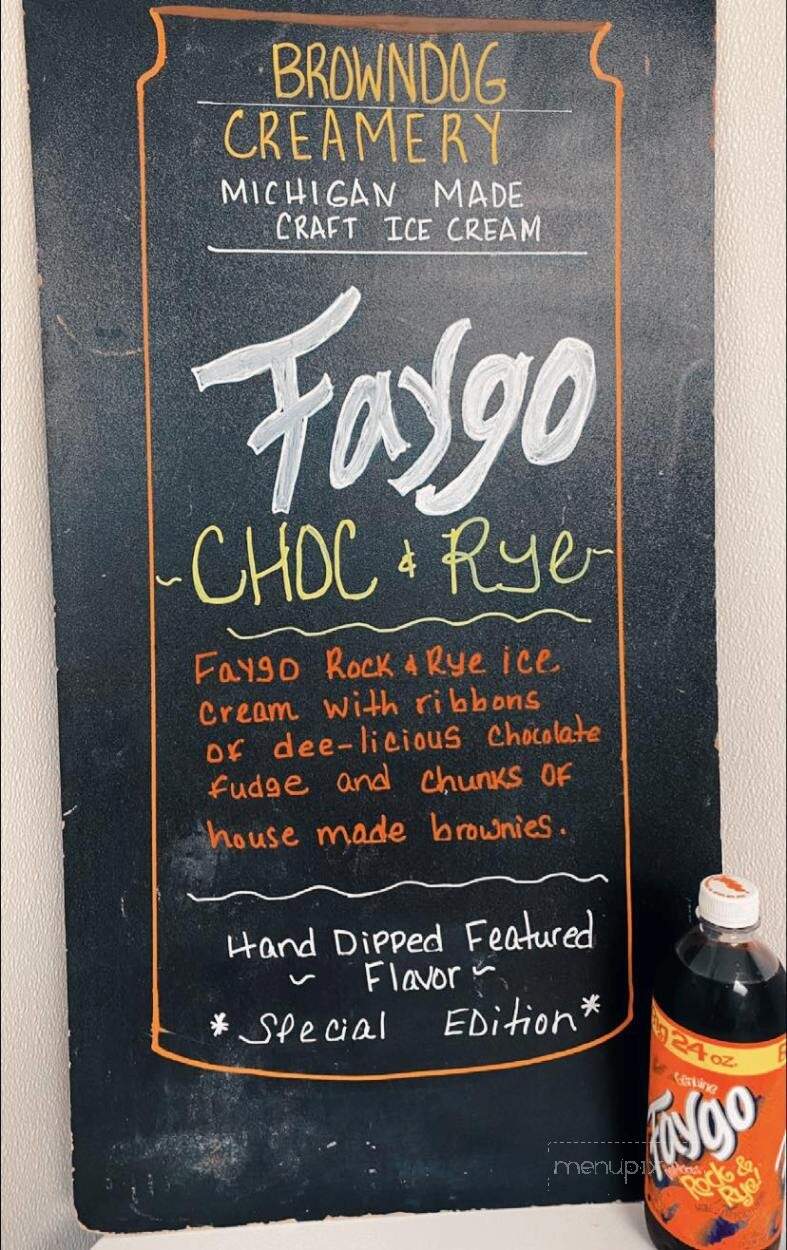 BROWNDOG
CREAMERY
MICHIGAN MADE
CRAFT ICE CREAM
Faygo
~CHOC & Rye~
Faygo Rock & Rye ice
cream with ribbons
of dee-licious chocolate
fudge and chunks of
house made brownies.
Hand Dipped Featured
~ Flavor ~
*Special Edition*
24 oz
Genuine
Faygo
Rock &
Rye!
menupix